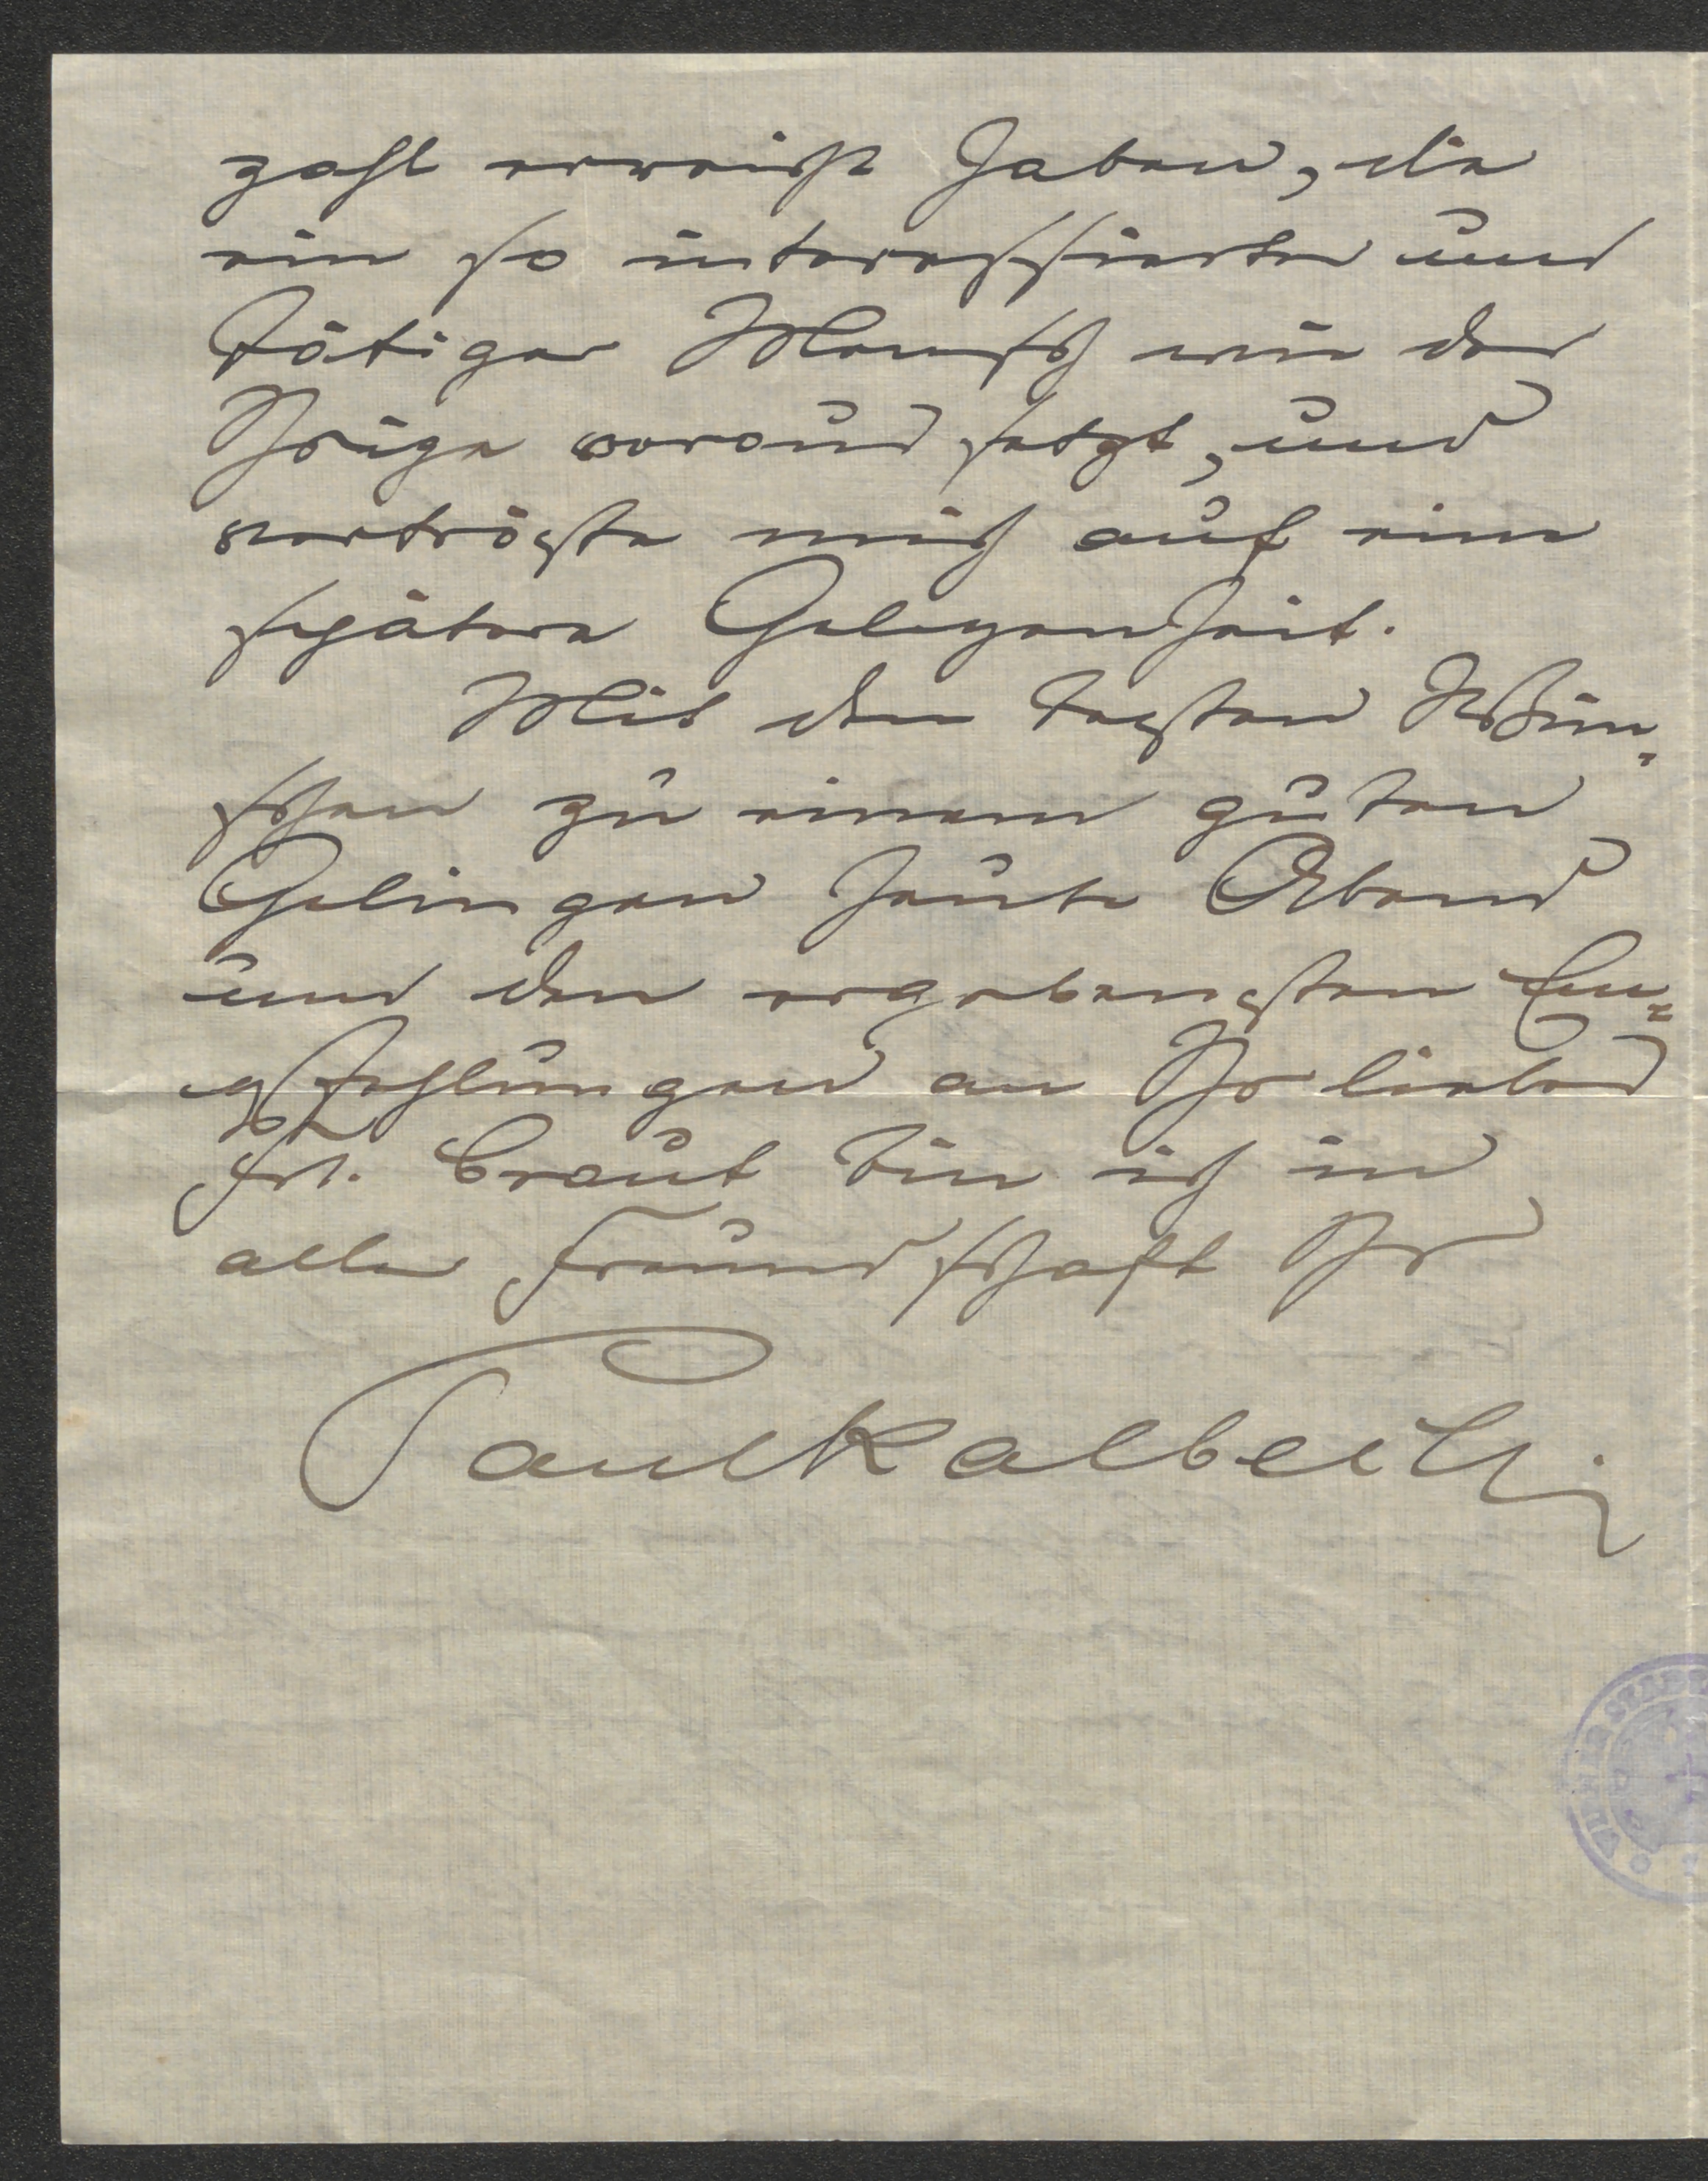 zahl erreicht haben, die
ein so interessierter und
tätiger Mensch wie der
Ihrige voraus setzt, und
vertröste mich auf eine
spätere Gelegenheit.
Mit den besten Wün-
schen zu einem guten
Gelingen heute Abend
und den ergebensten Em-
pfehlungen an Ihr liebes
Frl. Braut bin ich in
aller Freundschaft Ihr
Paul Kalbeck.
WIENER STADT